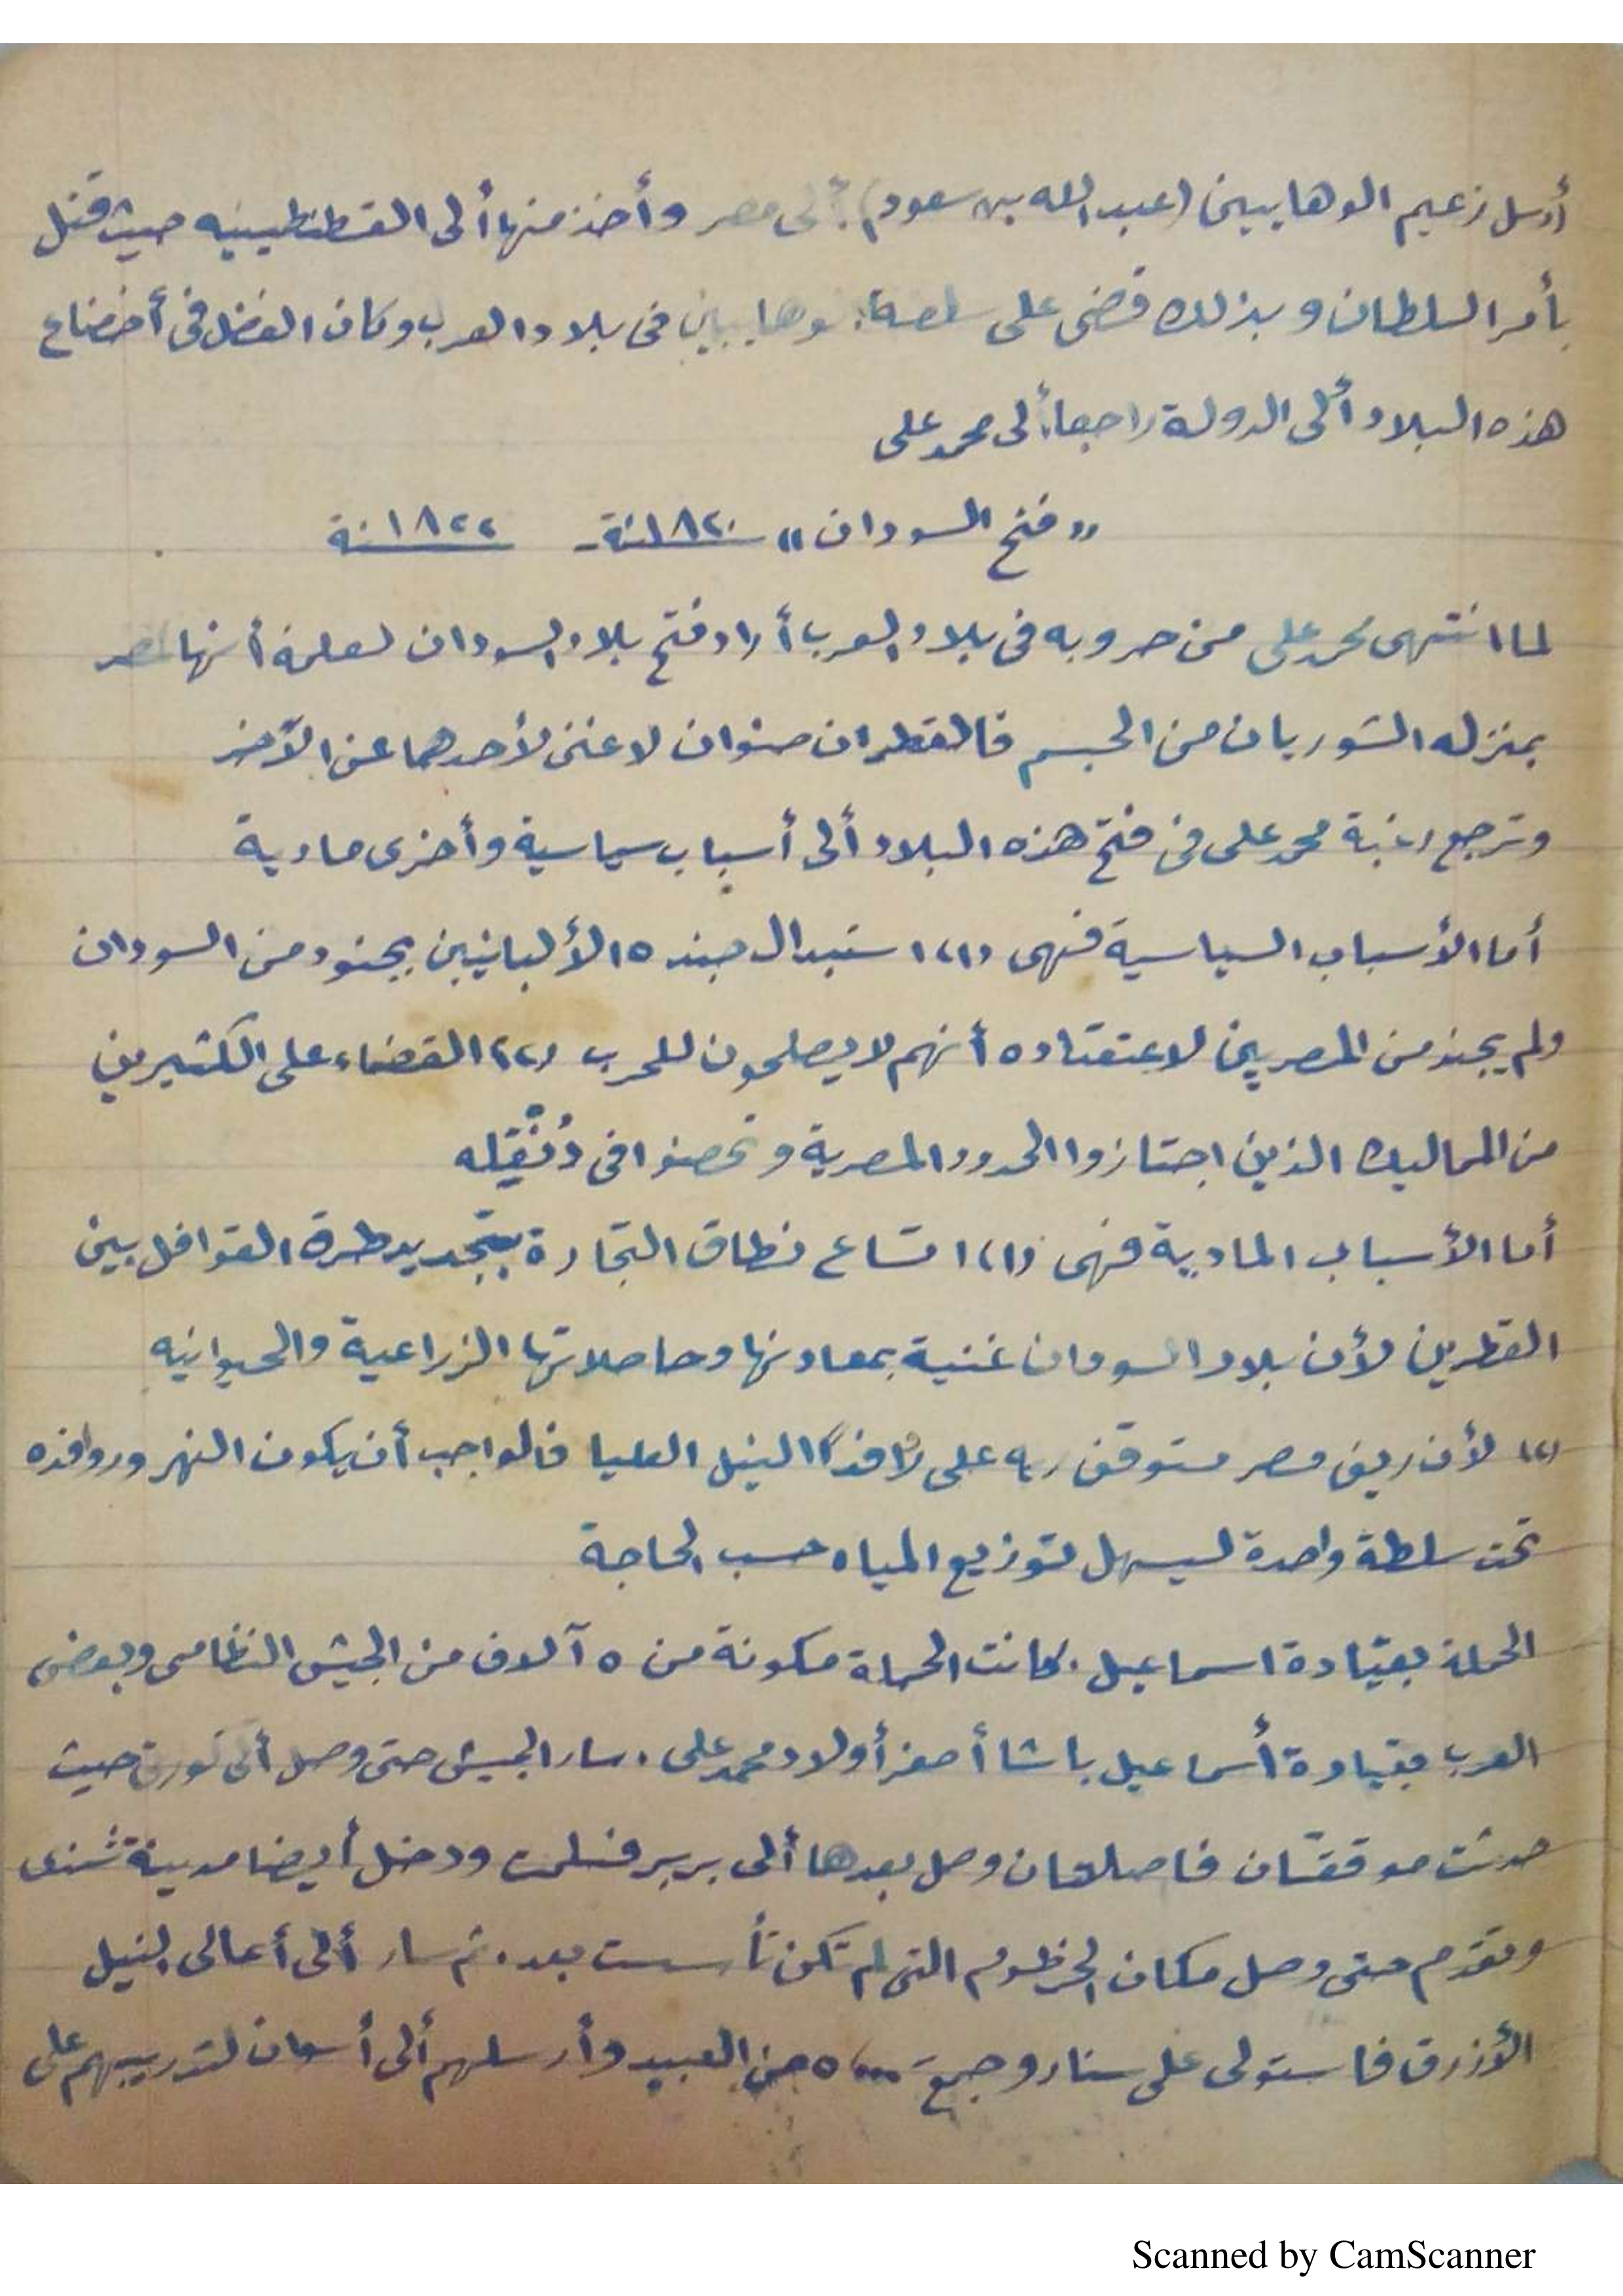 أرسل زعيم الوهابيين (عبد الله بن سعود) ألى مصر وأخذ منها ألى القسطنطينيه حيث قتل
بأمر السلطان وبذلك قضى على سلطة الوهابيين فى بلاد العرب وكان الفضل فى أخضاع
هذه البلاد ألى الدولة راجعا ألى محمد على
"فتح السودان" سنة ١٨٢٠ - سنة ١٨٢٢
لما انتهى محمد على من حروبه فى بلاد العرب أراد فتح بلاد السودان لعلمة أنها لمصر
بمنزله الشوريان من الجسم فالقطران صنوان لا غنى لأحدهما عن الآخر
وترجع رغبة محمد على فى فتح هذه البلاد ألى أسباب سياسية وأخرى مادية
أما الأسباب السياسية فهى (١) استبدال جنده الألبانيين بجنود من السودان
ولم يجند من المصريين لاعتقاده أنهم لا يصلحون للحرب (٢) القضاء على الكثيرين
من المماليك الذين اجتازوا الحدود المصرية وتحصنوا فى دُنْقله
أما الأسباب المادية فهى (١) اتساع نطاق التجارة بتجديد طرق القوافل بين
القطرين لأن بلاد السودان غنية بمعادنها وحاصلاتها الزراعية والحيوانيه
(٢) لأن ريف مصر متوقف ريه على النيل العليا فالواجب أن يكون النهر وروافده
تحت سلطة واحدة ليسهل توزيع المياه حسب الحاجة
الحملة بقيادة اسماعيل . كانت الحملة مكونة من ٥ آلاف من الجيش النظامى وبعض
العرب بقيادة أسماعيل باشا أصغر أولاد محمد على . سار الجيش حتى وصل ألى كورتى حيث
حدثت موقعتان فاصلتان وصل بعدها ألى بربر فسلمت ودخل أيضا مدينة شندى
وتقدم حتى وصل مكان الخرطوم التى لم تكن تأسست بعد . ثم سار ألى أعالى النيل
الأزرق فاستولى على سنار وجمع ٥٠٠٠ من العبيد وأرسلهم ألى أسوان لتدريبهم على
Scanned by CamScanner